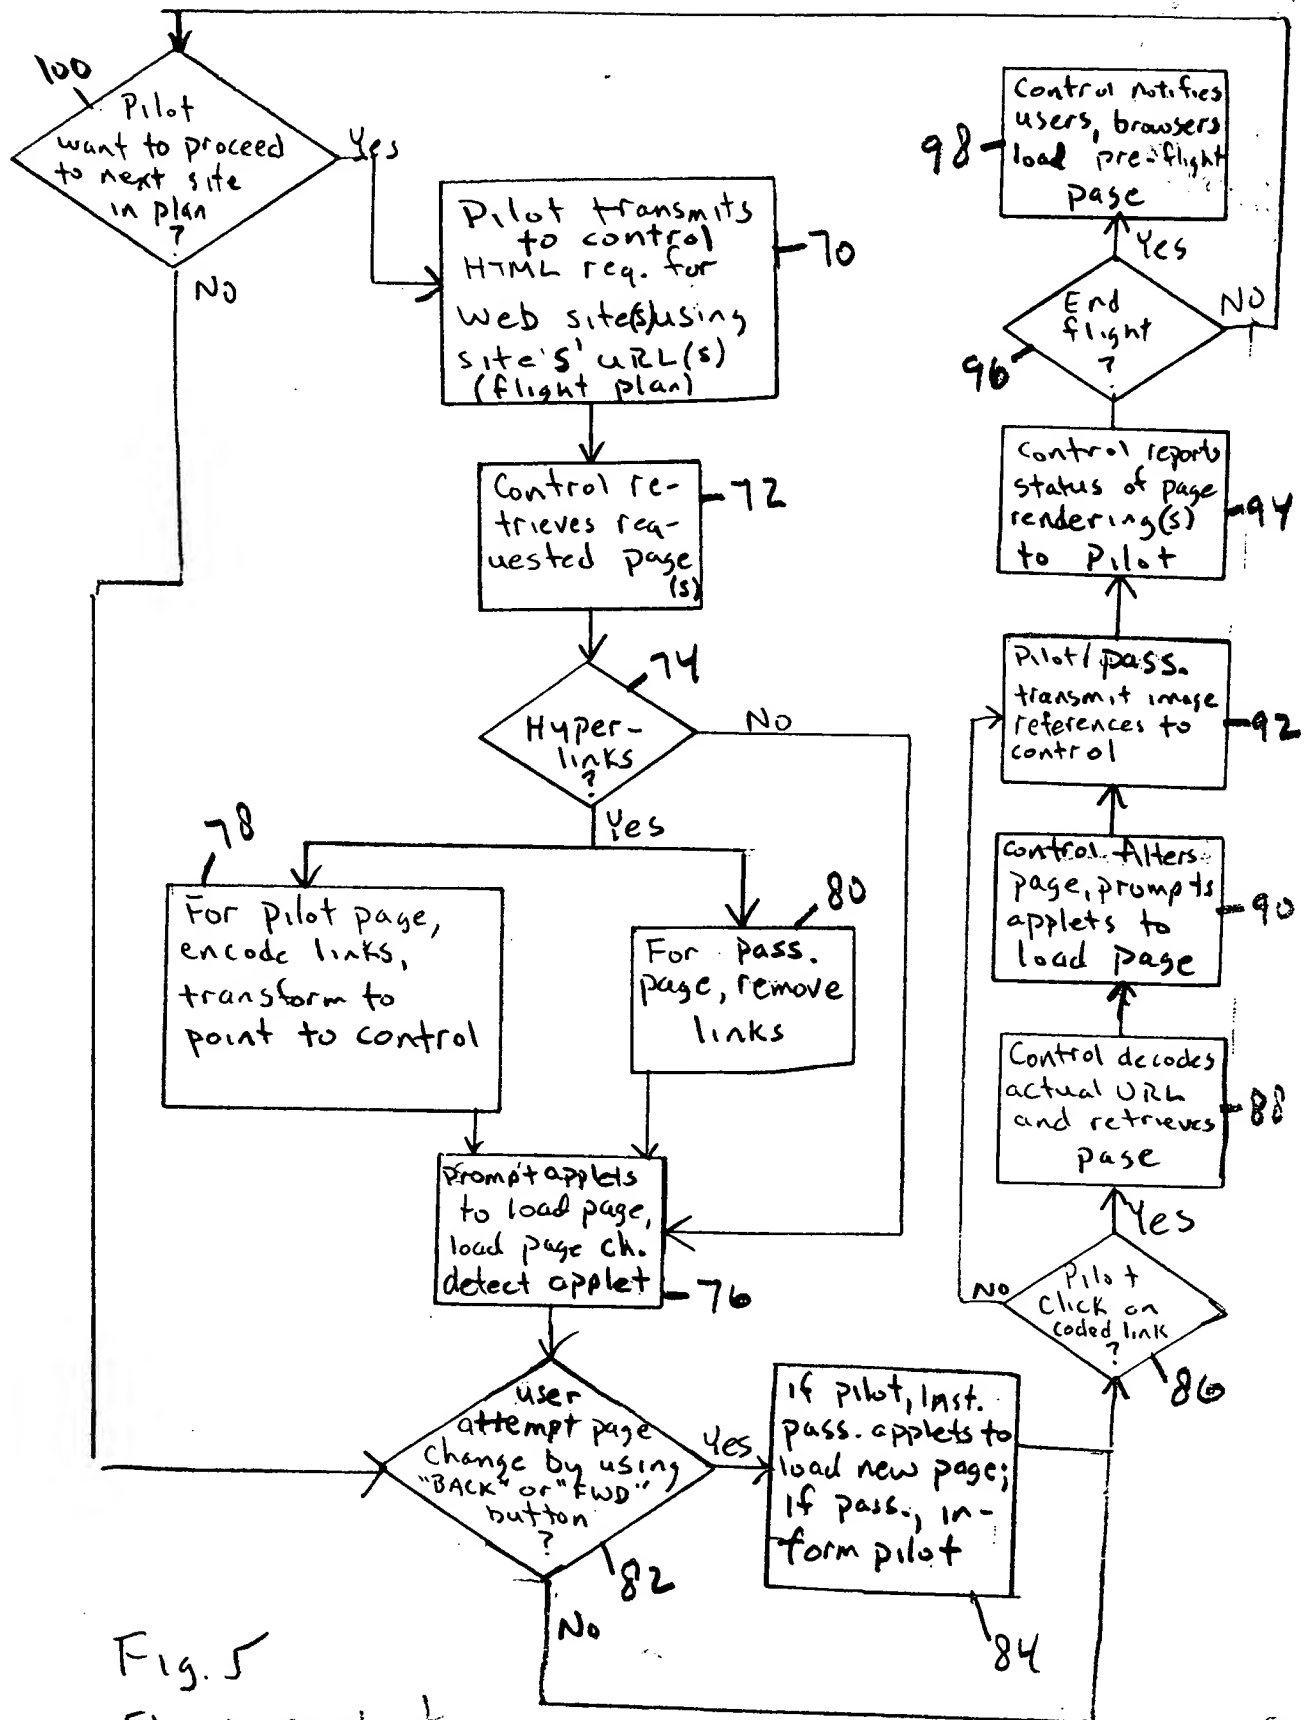 100
Pilot
want to proceed
to next site
in plan
?
Yes
NO
Pilot transmits
to control
HTML req. for
Web site(s) using
site's' URL(s)
(flight plan)
70
Control re-
trieves req-
uested page
(s)
72
74
Hyper-
links
?
NO
Yes
78
For pilot page,
encode links,
transform to
point to control
80
For pass.
page, remove
links
Prompt applets
to load page,
load page ch.
detect applet
76
user
attempt page
change by using
"BACK" or "FWD"
button
?
82
Yes
NO
if pilot, Inst.
pass. applets to
load new page;
if pass., in-
form pilot
84
Pilot
Click on
coded link
?
86
NO
Yes
Control decodes
actual URL
and retrieves
page
88
control filters
page, prompts
applets to
load page
90
Pilot/pass.
transmit image
references to
control
92
Control reports
status of page
rendering(s)
to Pilot
94
End
flight
?
96
NO
Yes
Control notifies
users, browsers
load pre-flight
page
98
Fig. 5